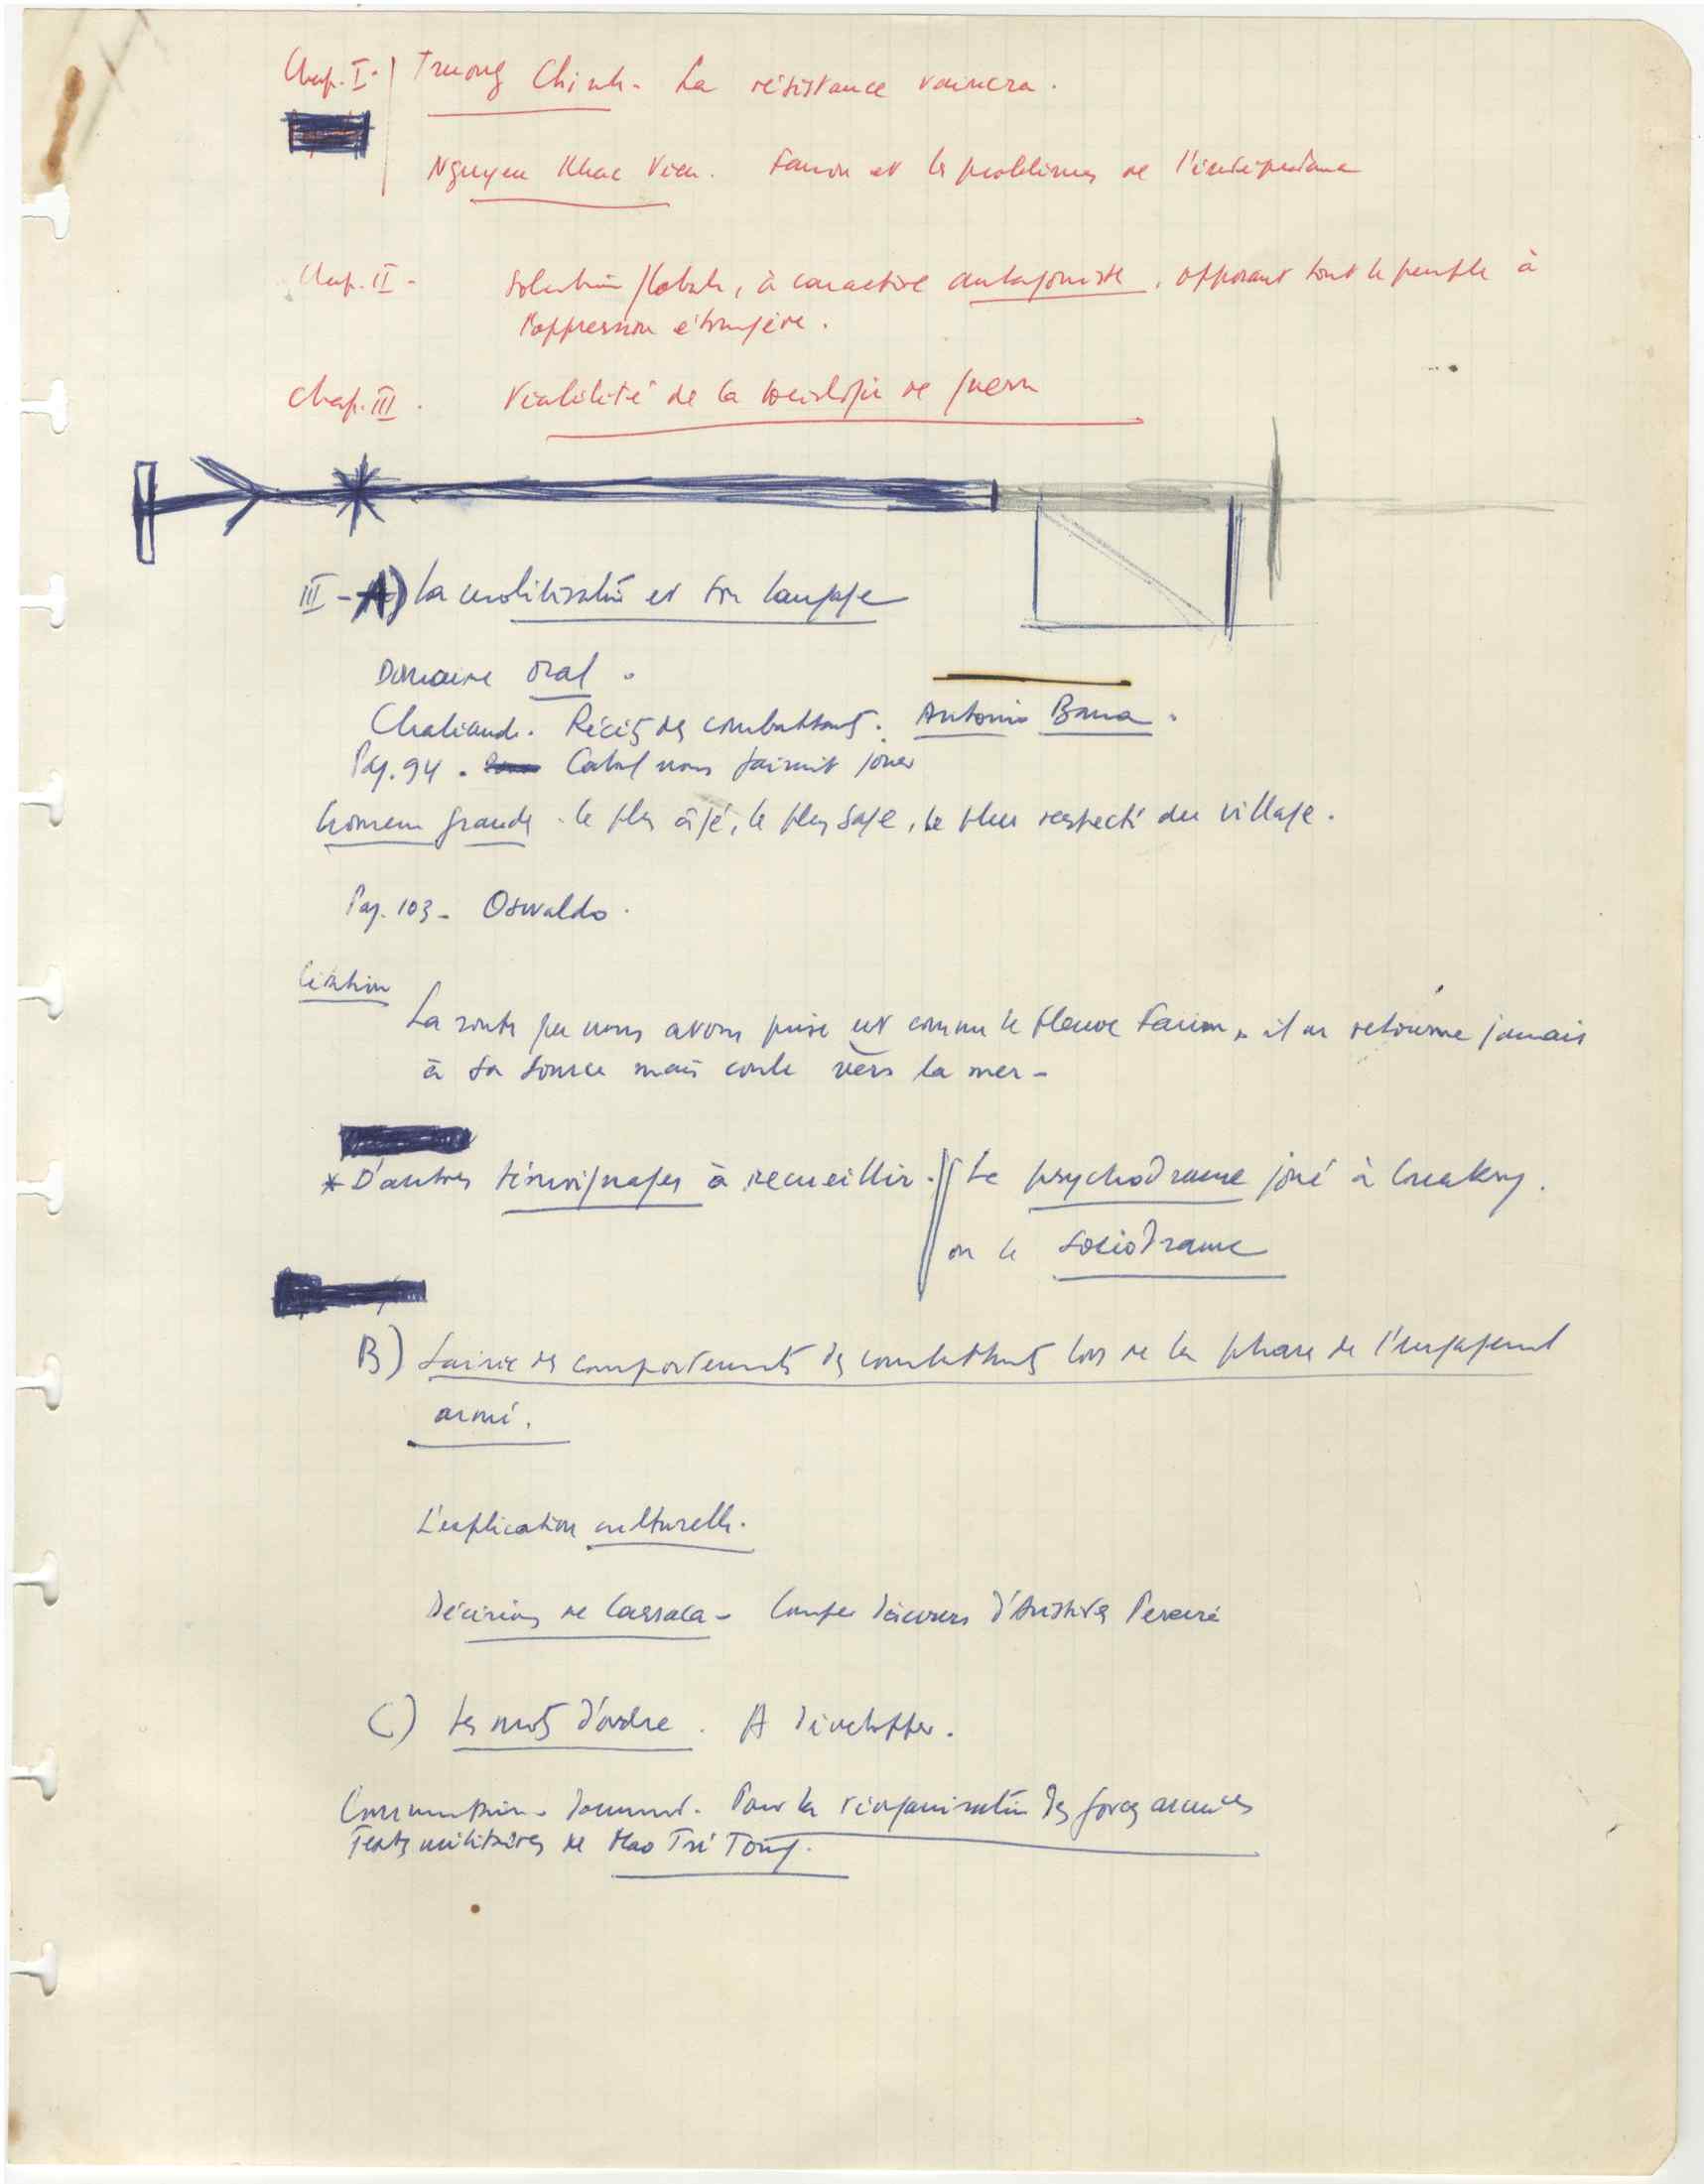 Chap. I. Truong Chinh. La résistance vaincra.
Nguyen Khac Vien. Fanon et les problèmes de l'indépendance
Chap. II - Solution globale, à caractère antagoniste, opposant tout le peuple à
l'oppression étrangère.
Chap. III. Viabilité de la sociologie de guerre
III - A) La mobilisation et son langage
Domaine oral.
Chaliand. Récits des combattants. Antonio Bana.
Pag. 94. Cabral nous faisait jouer
homem grande. le plus âgé, le plus sage, le plus respecté du village.
Pag. 103 - Oswaldo.
Citation
La route que nous avons prise est comme le fleuve Farim, il ne retourne jamais
à sa source mais coule vers la mer -
* D'autres témoignages à recueillir. Le psychodrame joué à Conakry.
ou le sociodrame
B) Saisie des comportements des combattants lors de la phase de l'engagement
armé.
L'explication culturelle.
Décisions de Cassaca - discours d'Aristides Pereira
C) Les mots d'ordre. A développer.
document. Pour la réorganisation des forces armées
Textes militaires de Mao Tsé Toung.